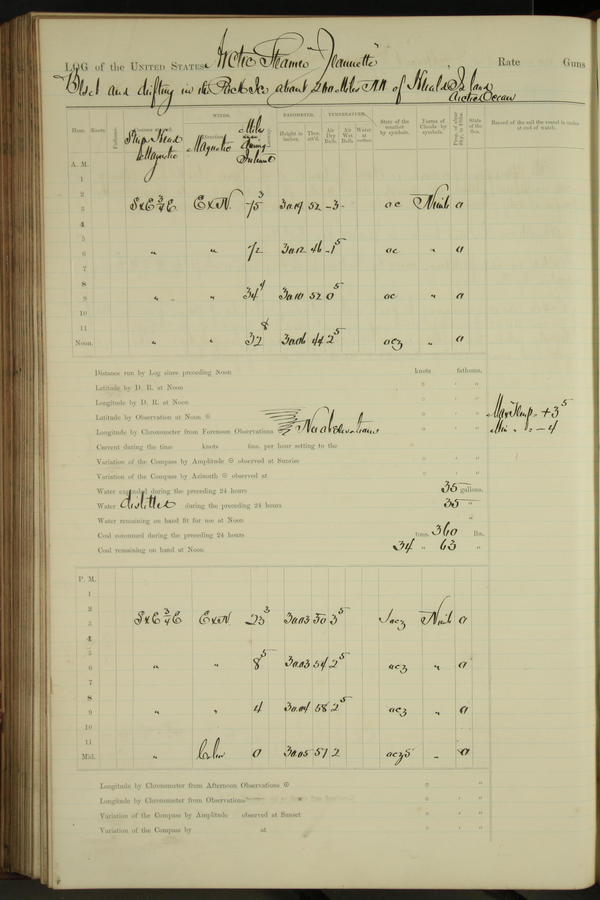 LOG of the UNITED STATES Arctic Steamer "Jeannette" Rate Guns
Beset and drifting in the Pack Ice about 200 Miles NW of Herald Island
Arctic Ocean
Hour. Knots. Fathoms. Ship's Head Magnetic WINDS. Direction Magnetic Miles during BAROMETER. Height in inches. Ther. att'd. TEMPERATURE. Air Dry Bulb. Air Wet Bulb. Water at surface. State of the weather by symbols. Forms of Clouds by symbols. State of the Sea. Record of the sail the vessel is under at end of watch.
A. M.
1
2
3 SxE¾E ExN 75³ 30.19 52 -3 oc Nimb a
4
5
6 " " 72 30.12 46 -1⁵ oc " a
7
8
9 " " 34⁴ 30.10 52 0⁵ oc " a
10
11
Noon. " " 32⁸ 30.06 44 2⁵ ocz " a
Distance run by Log since preceding Noon knots fathoms.
Latitude by D. R. at Noon ° ' "
Longitude by D. R. at Noon ° ' "
Latitude by Observation at Noon ° ' " Max Temp. +3⁵
Longitude by Chronometer from Forenoon Observations No observations ° ' " Min " -4
Current during the time knots fms. per hour setting to the
Variation of the Compass by Amplitude observed at Sunrise ° ' "
Variation of the Compass by Azimuth observed at ° ' "
Water expended during the preceding 24 hours 35 gallons.
Water distilled during the preceding 24 hours 35 "
Water remaining on hand fit for use at Noon "
Coal consumed during the preceding 24 hours tons. 360 lbs.
Coal remaining on hand at Noon 34 " 63 "
P. M.
1
2
3 SxE¾E ExN 23³ 30.03 50 3⁵ Nimb a
4
5
6 " " 8⁵ 30.03 54 2⁵ ocz " a
7
8
9 " " 4 30.04 58 2⁵ ocz " a
10
11
Mid. " Calm 0 30.05 57 2 " a
Longitude by Chronometer from Afternoon Observations ° ' "
Longitude by Chronometer from Observations ° ' "
Variation of the Compass by Amplitude observed at Sunset ° ' "
Variation of the Compass by at ° ' "